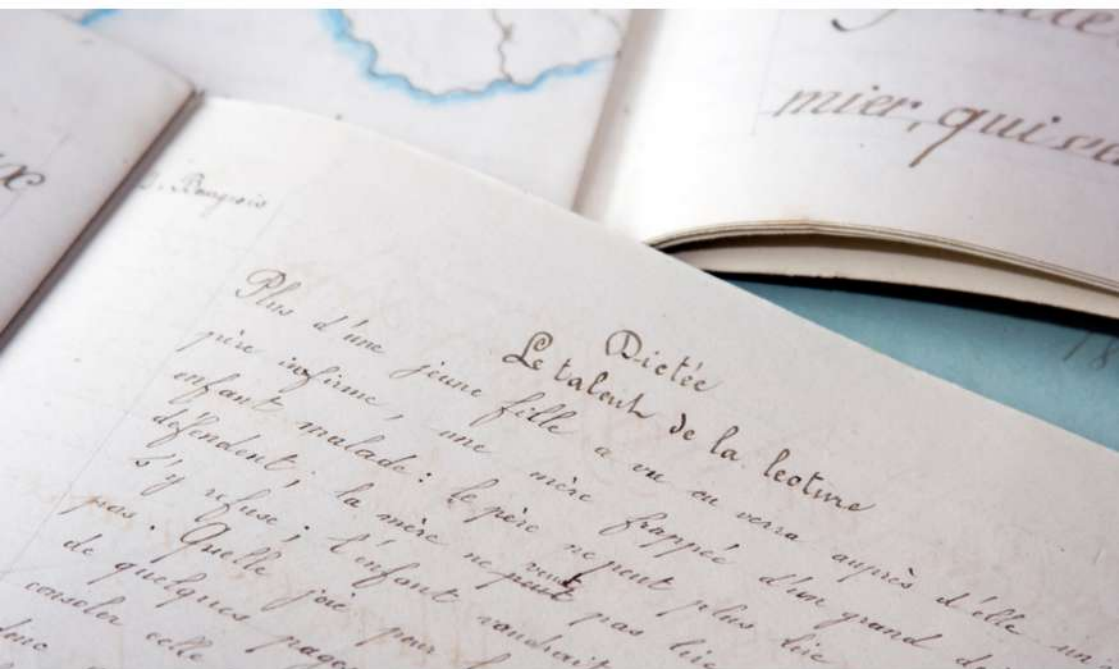 mier, qui
Dictée
Le talent de la lecture
Plus d'une jeune fille a vu ou verra auprès d'elle un
père infirme, une mère frappée d'un grand
enfant malade: le père ne peut plus lire
défendent; la mère ne veut pas lire
s'y refuse; l'enfant voudrait
pas. Quelle joie pour
de quelques pages
consoler celle
donc